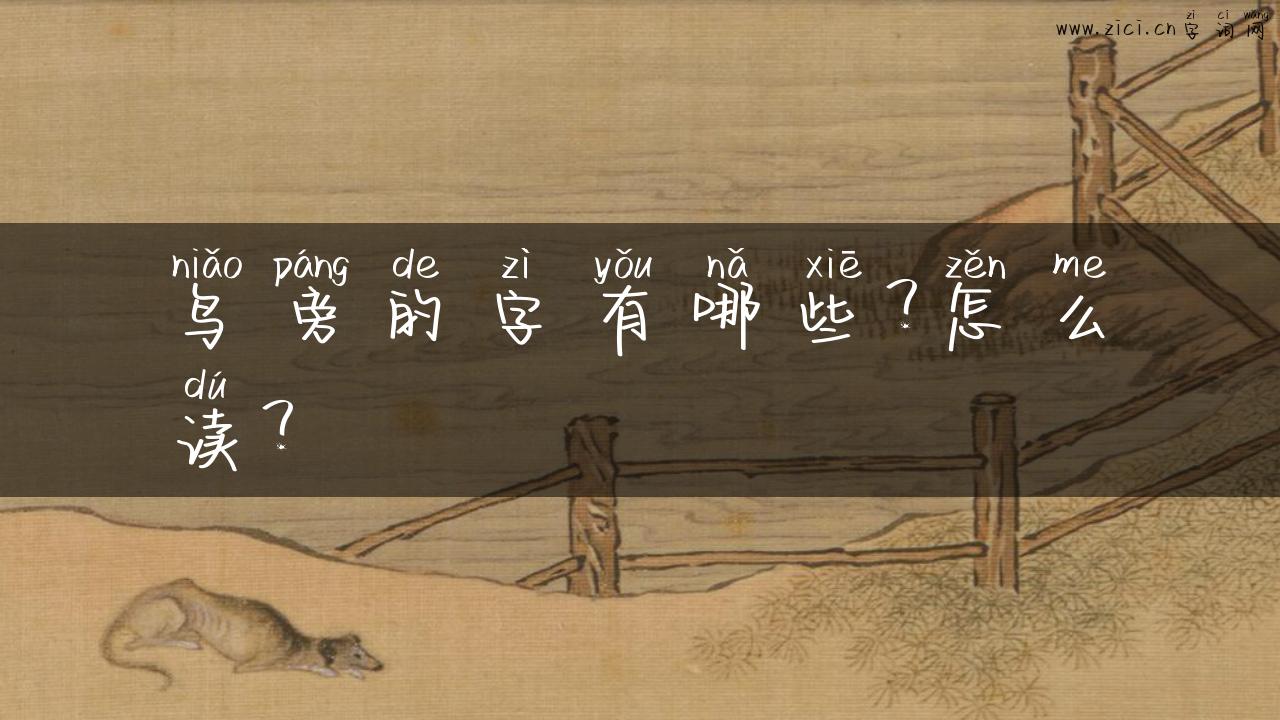 zì cí wǎng
www.zici.cn字词网
niǎo páng de zì yǒu nǎ xiē zěn me
鸟旁的字有哪些?怎么
dú
读?